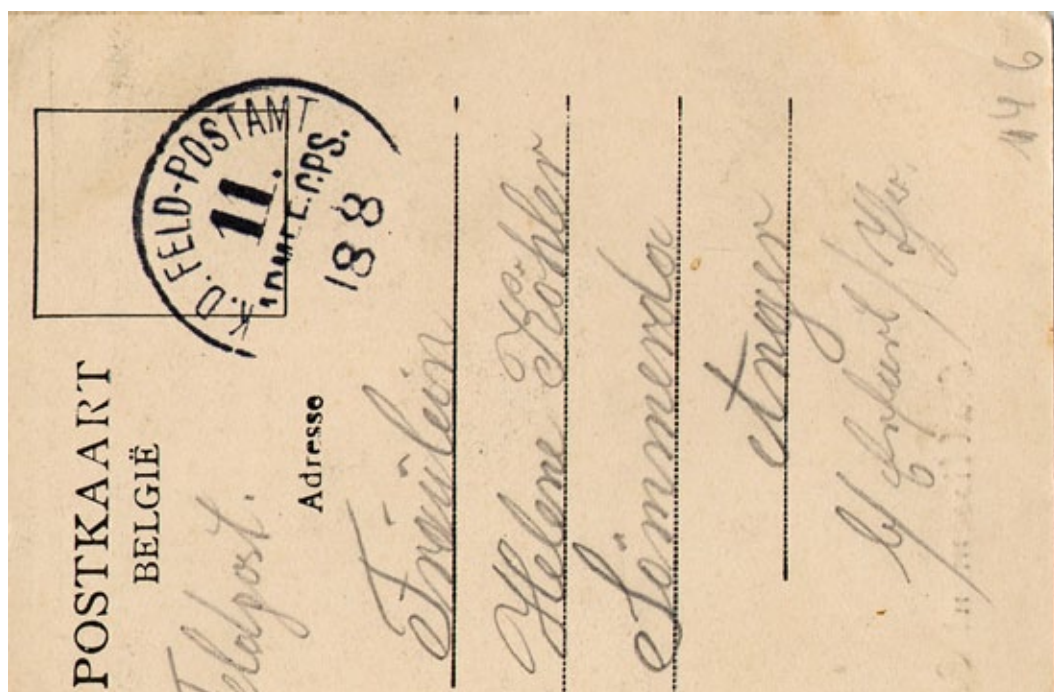 POSTKAART
BELGIË
Feldpost.
K.D. FELD-POSTAMT
11.
ARMEECPS.
18 8
Adresse
Fräulein
Helene Köhler
Sömmerda
Anger
b/ Erfurt / Thr.
446